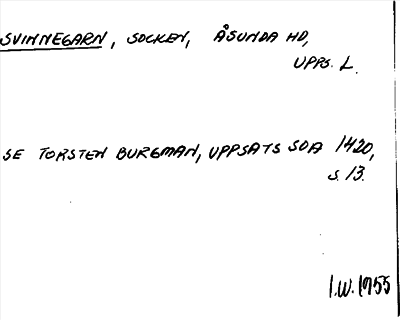 SVINNEGARN, SOCKEN, ÅSUNDA HD,
UPPS. L.
SE TORSTEN BURGMAN, UPPSATS SOA 1420,
S. 13.
I.W. 1955